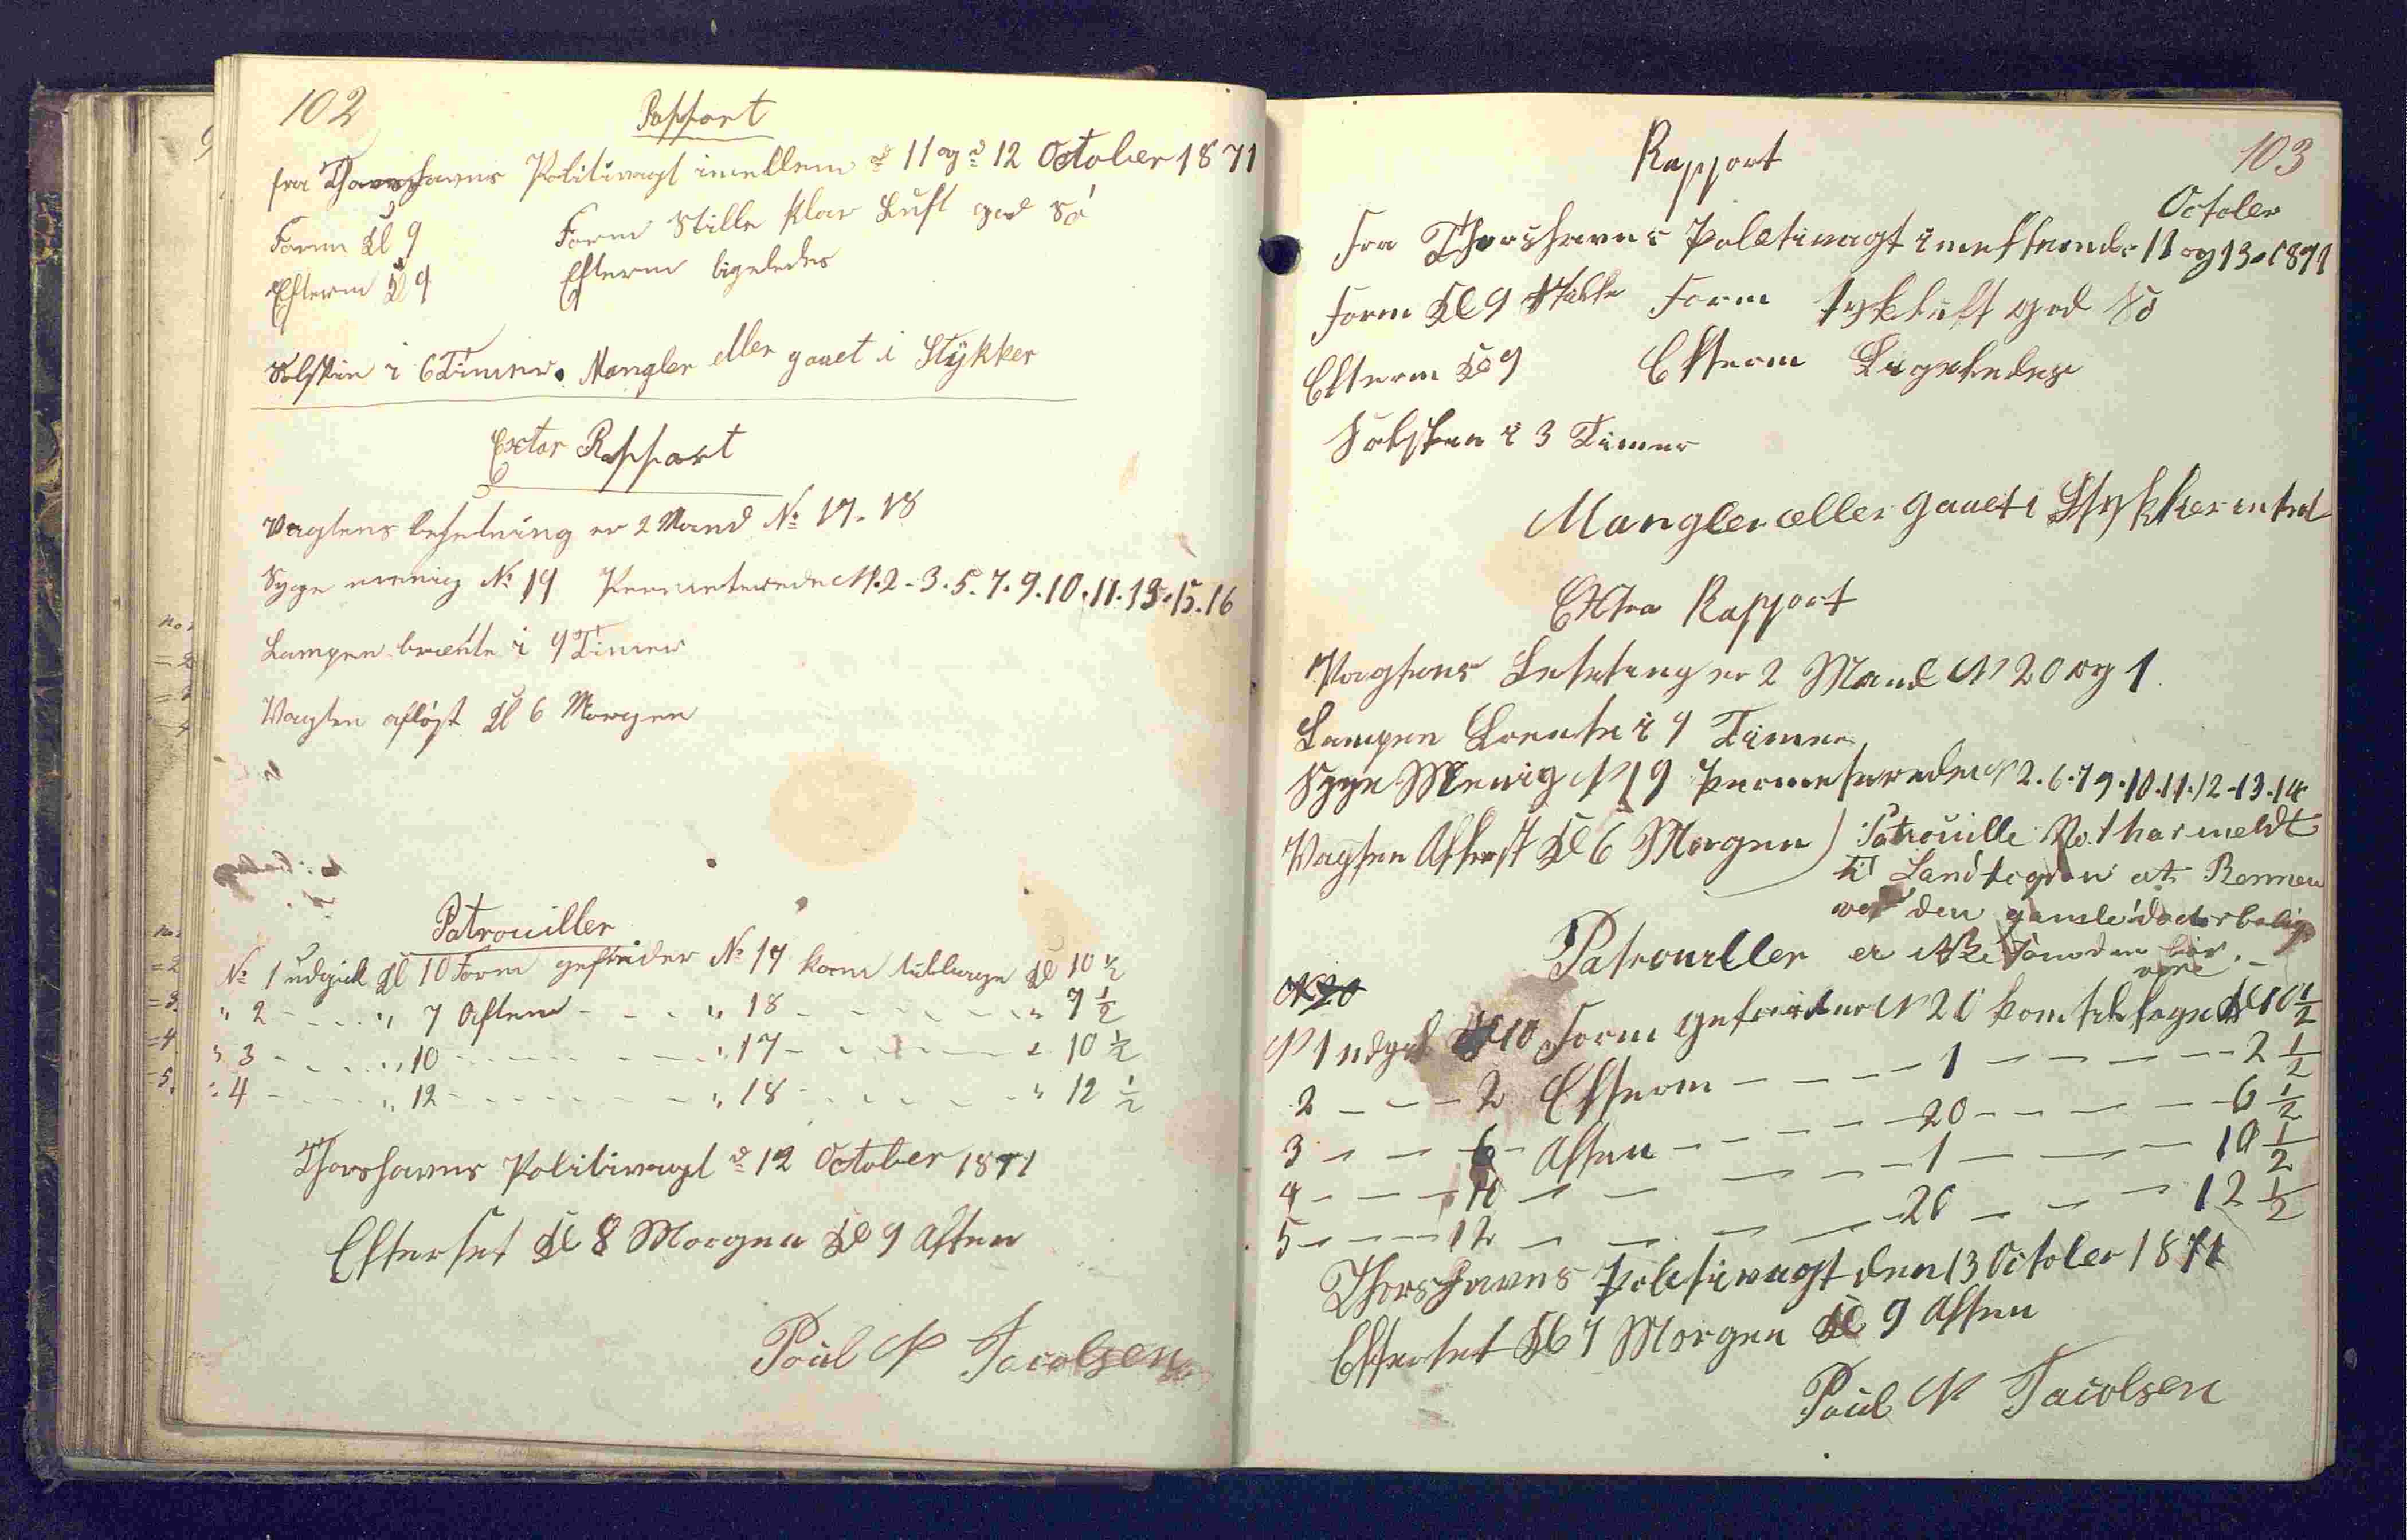 102
Rapport
fra Thorshavns Politivagt imellem d 11 og d 12 October 1871
Form Kl 9 Form Stille Klar Luft god Sö
Efterm Kl 9 Efterm ligeledes
Solskin i 6 Timer. Mangler eller gaaet i Stykker
Extar Rapport
Vagtens besetning er 2 Mand No 17. 18
Syge menig No 19 Permeterede N. 2 - 3. 5. 7. 9. 10. 11. 13. 15. 16
Lampen brænte i 9 Timer
Vagten aflöst Kl 6 Morgen
Patrouiller
No 1 udgik Kl 10 Form gefreider No 17 kom tilbage Kl 10 ½
" 2 - - - " 7 Aften - - - " 18 - - - - " 7 ½
" 3 - - - " 10 - - - - " 17 - - - - " 10 ½
" 4 - - - " 12 - - - - " 18 - - - - " 12 ½
Thorshavns Politivagt d 12 October 1871
Efterset Kl 8 Morgen Kl 9 Aften
Poul N Jacobsen
103
Rapport
October
Fra Thorshavns Poletivagt imellem de 11 og 13 - 1871
Form Kl 9 Stille Form tykluft god Sö
Efterm Kl 9 Efterm Ligeledes
Solsken i 3 Timer
Mangler eller gaaet i Stykker intet
Extra Rapport
Vagtens Besetning er 2 Mand N 20 og 1
Lampen Brente i 9 Timer
Syge Menig N 19 Permeterede N 2. 6. 7 9. 10. 11. 12 - 13. 14
Vagten Aflöst Kl 6 Morgen) Patrouille No. 1 har meldt
til Landfogden at Rennen
ved den gamle doctorbolig
Patrouiller er ikke som den bör
være. -
N 20
N 1 udgik Kl 10 Form gefreider N 20 kom tilbage Kl 10 ½
2 - - - 2 Efterm - - - - 1 - - - - 2 ½
3 - - - 6 - Aften - - - - 20 - - - - 6 ½
4 - - - 10 - - - - 1 - - - 10 ½
5 - - - 12 - - - - 20 - - - 12 ½
Thorshavns Poletivagt den 13 October 1871
Efterset Kl 7 Morgen Kl 9 Aften
Poul N Jacobsen